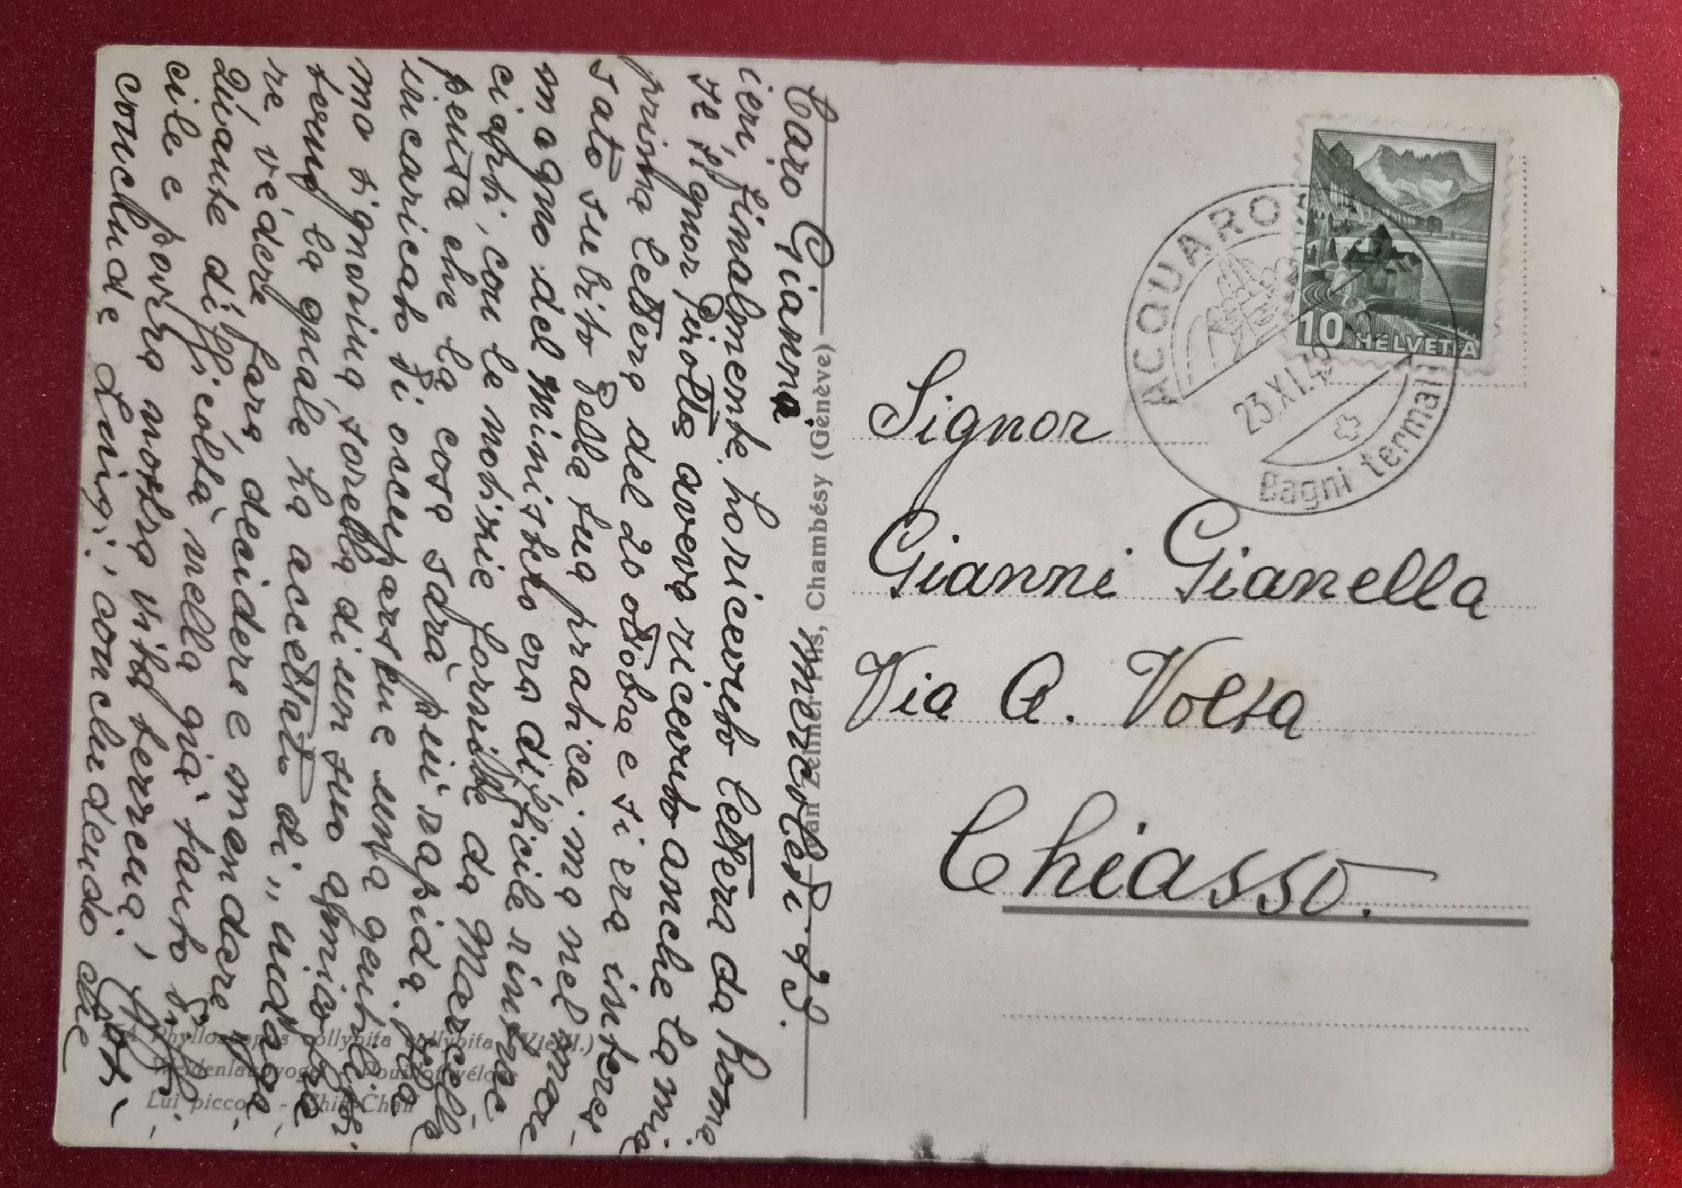 Caro Gianni mercoledì 23.
ieri, finalmente, ho ricevuto lettera da Roma
se il Signor Pirotta aveva ricevuto anche la mia
prima lettera del 20 ottobre e si era interes-
sato subito della tua pratica: ma nel mare
magno del Ministero era difficile rintrac-
ciarti, con le notizie fornite da Marcello
pensa che la cosa sarà più rapida. Ha
incaricato di occuparsene una gentilis-
ma signorina sorella di un suo amico
la quale ha accettato di
re, vedere, fare, decidere e mandare
Quante difficoltà nella già tanto diffi-
cile e povera nostra vita terrena!
conclude Luigi, concludendo che
ACQUAROSSA
23.XI.49
Bagni termali
10 HELVETIA
Signor
Gianni Gianella
Via A. Volta
Chiasso.
Jean Zelmer Fils, Chambésy (Genève)
Phylloscopus collybita collybita (Vieill.)
Weidenlaubvogel - Pouillot véloce
Lui piccolo - Chiff-Chaff